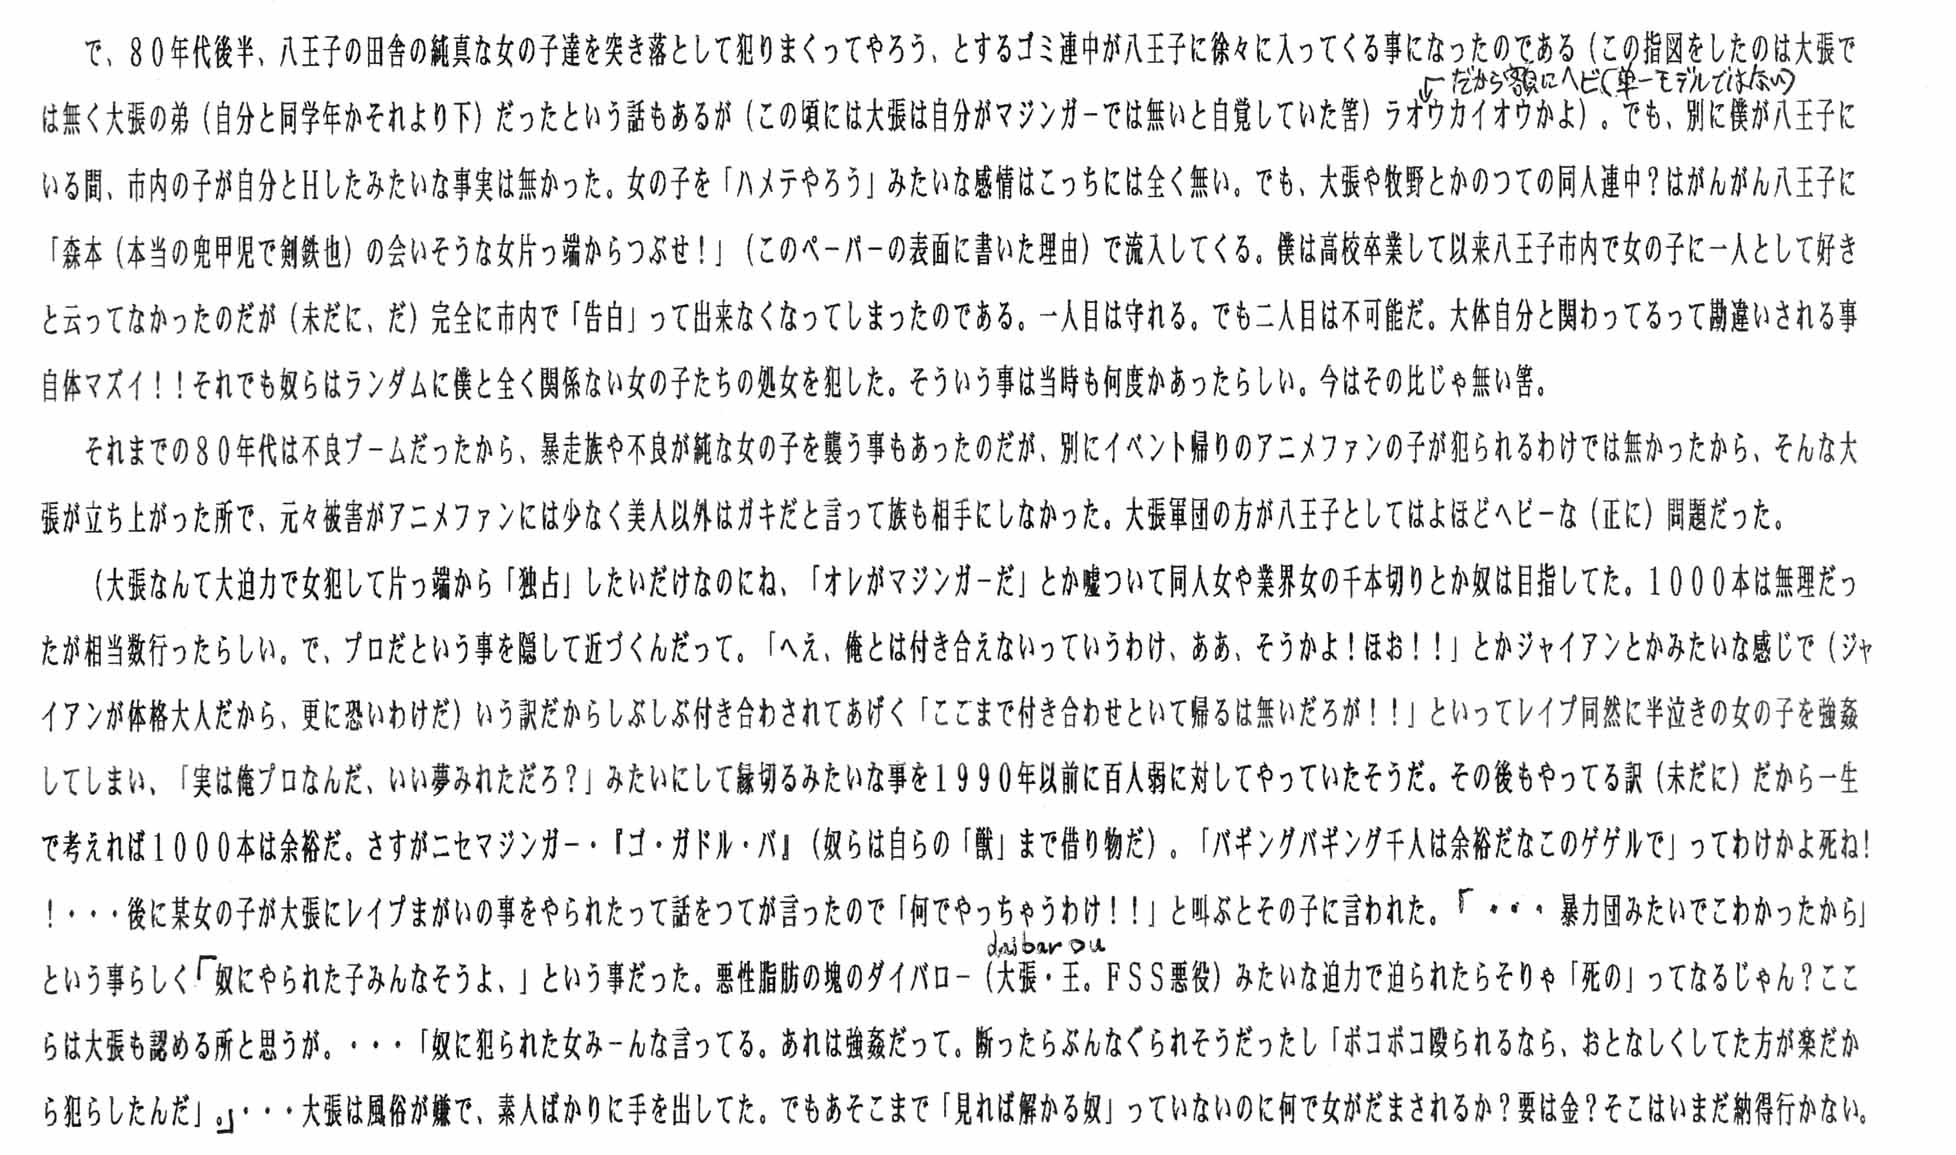 で、８０年代後半、八王子の田舎の純真な女の子達を突き落として犯りまくってやろう、とするゴミ連中が八王子に徐々に入ってくる事になったのである（この指図をしたのは大張で
だから額にヘビ(単一モデルではない)
は無く大張の弟（自分と同学年かそれより下）だったという話もあるが（この頃には大張は自分がマジンガーでは無いと自覚していた筈）ラオウカイオウかよ）。でも、別に僕が八王子に
いる間、市内の子が自分とＨしたみたいな事実は無かった。女の子を「ハメテやろう」みたいな感情はこっちには全く無い。でも、大張や牧野とかのつての同人連中？はがんがん八王子に
「森本（本当の兜甲児で剣鉄也）の会いそうな女片っ端からつぶせ！」（このペーパーの表面に書いた理由）で流入してくる。僕は高校卒業して以来八王子市内で女の子に一人として好き
と云ってなかったのだが（未だに、だ）完全に市内で「告白」って出来なくなってしまったのである。一人目は守れる。でも二人目は不可能だ。大体自分と関わってるって勘違いされる事
自体マズイ！！それでも奴らはランダムに僕と全く関係ない女の子たちの処女を犯した。そういう事は当時も何度かあったらしい。今はその比じゃ無い筈。
それまでの８０年代は不良ブームだったから、暴走族や不良が純な女の子を襲う事もあったのだが、別にイベント帰りのアニメファンの子が犯られるわけでは無かったから、そんな大
張が立ち上がった所で、元々被害がアニメファンには少なく美人以外はガキだと言って族も相手にしなかった。大張軍団の方が八王子としてはよほどヘビーな（正に）問題だった。
（大張なんて大迫力で女犯して片っ端から「独占」したいだけなのにね、「オレがマジンガーだ」とか嘘ついて同人女や業界女の千本切りとか奴は目指してた。１０００本は無理だっ
たが相当数行ったらしい。で、プロだという事を隠して近づくんだって。「へえ、俺とは付き合えないっていうわけ、ああ、そうかよ！ほお！！」とかジャイアンとかみたいな感じで（ジャ
イアンが体格大人だから、更に恐いわけだ）いう訳だからしぶしぶ付き合わされてあげく「ここまで付き合わせといて帰るは無いだろが！！」といってレイプ同然に半泣きの女の子を強姦
してしまい、「実は俺プロなんだ、いい夢みれただろ？」みたいにして縁切るみたいな事を１９９０年以前に百人弱に対してやっていたそうだ。その後もやってる訳（未だに）だから一生
で考えれば１０００本は余裕だ。さすがニセマジンガー・『ゴ・ガドル・バ』（奴らは自らの「獣」まで借り物だ）。「バギングバギング千人は余裕だなこのゲゲルで」ってわけかよ死ね！
！・・・後に某女の子が大張にレイプまがいの事をやられたって話をつてが言ったので「何でやっちゃうわけ！！」と叫ぶとその子に言われた。「・・・暴力団みたいでこわかったから」
daibarou
という事らしく「奴にやられた子みんなそうよ、」という事だった。悪性脂肪の塊のダイバロー（大張・王。ＦＳＳ悪役）みたいな迫力で迫られたらそりゃ「死の」ってなるじゃん？ここ
らは大張も認める所と思うが。・・・「奴に犯られた女みーんな言ってる。あれは強姦だって。断ったらぶんなぐられそうだったし「ボコボコ殴られるなら、おとなしくしてた方が楽だか
ら犯らしたんだ」。」・・・大張は風俗が嫌で、素人ばかりに手を出してた。でもあそこまで「見れば解かる奴」っていないのに何で女がだまされるか？要は金？そこはいまだ納得行かない。